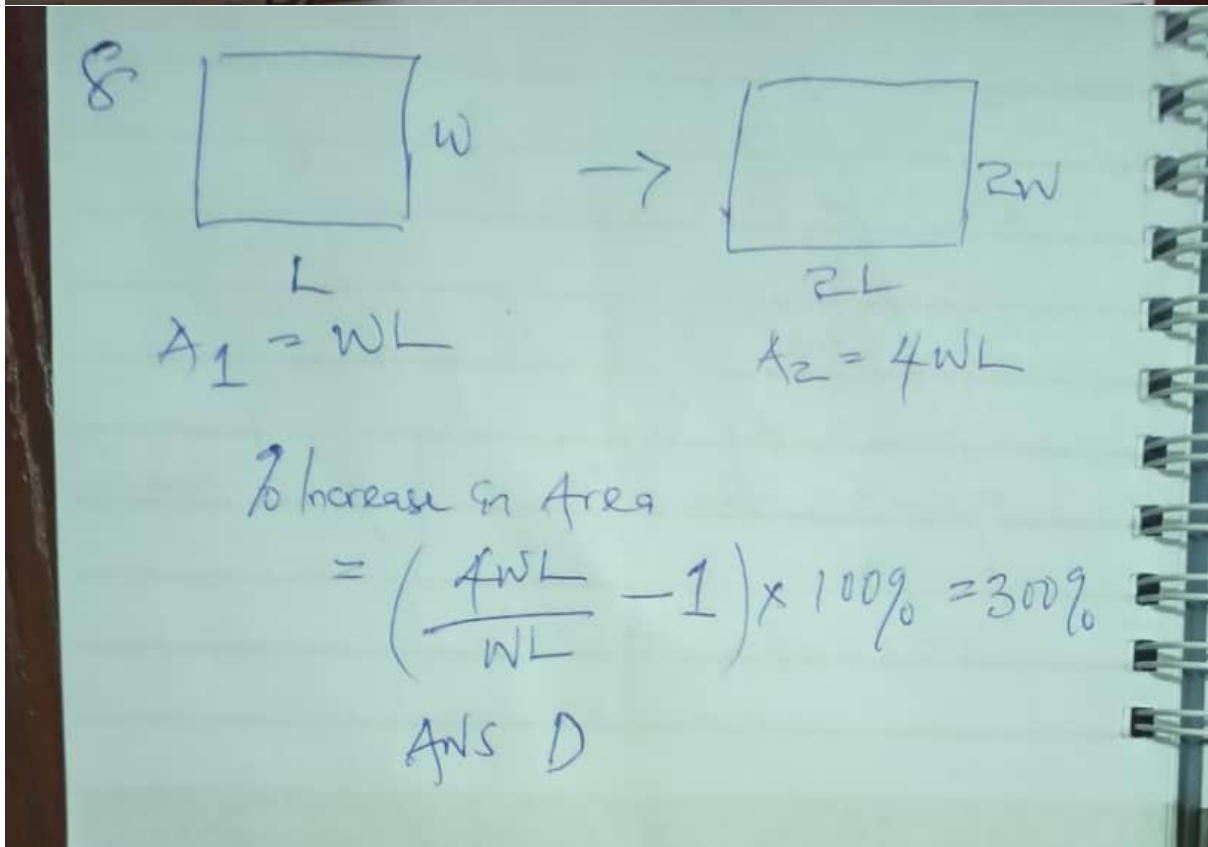 8
W
→
2W
L
2L
A1 = WL
A2 = 4WL
% Increase in Area
= (4WL/WL - 1) x 100% = 300%
ANS D